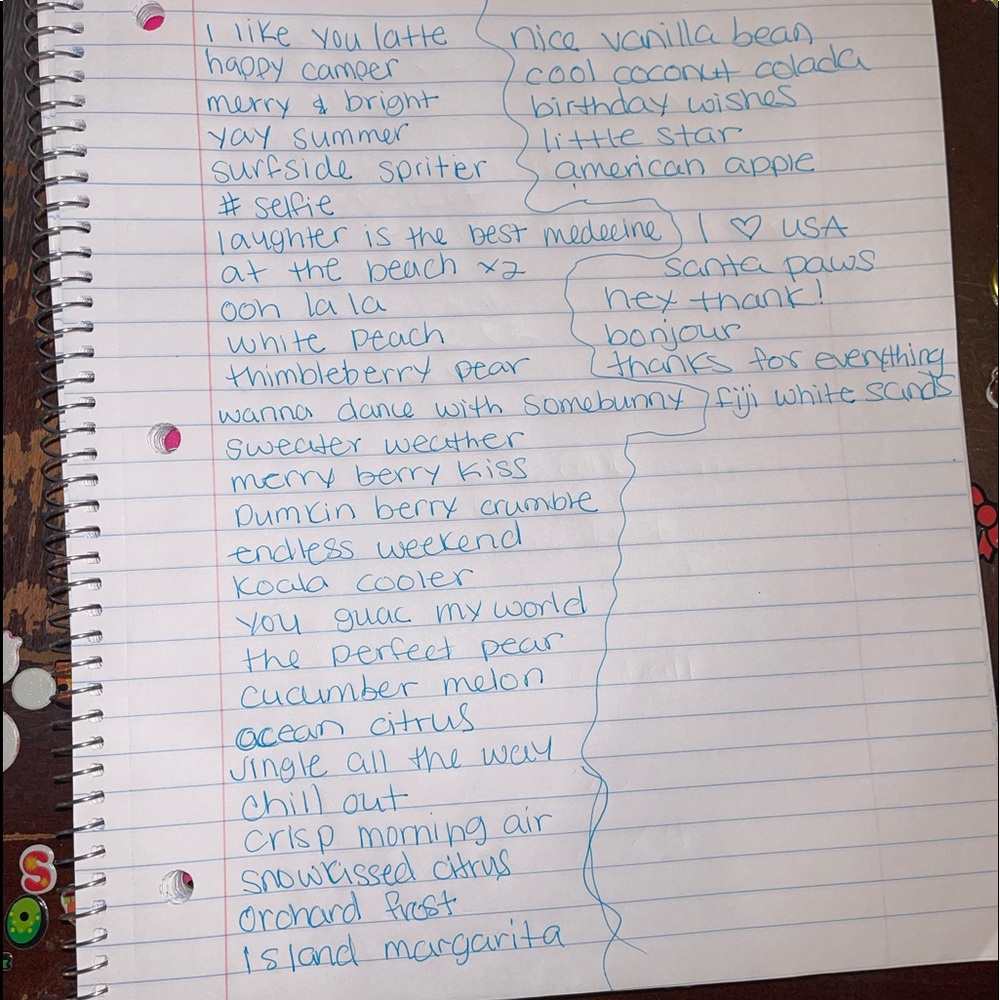 I like you latte
happy camper
merry & bright
yay summer
surfside spritier
# selfie
laughter is the best medecine
at the beach x2
ooh la la
white peach
thimbleberry pear
wanna dance with somebunny
sweater weather
merry berry kiss
Pumkin berry crumble
endless weekend
koala cooler
you guac my world
the perfect pear
cucumber melon
ocean citrus
Jingle all the way
chill out
crisp morning air
snowkissed citrus
orchard frost
Island margarita
nice vanilla bean
cool coconut colada
birthday wishes
little star
american apple
I ♡ USA
santa paws
hey thank!
bonjour
thanks for everything
fiji white sands
S